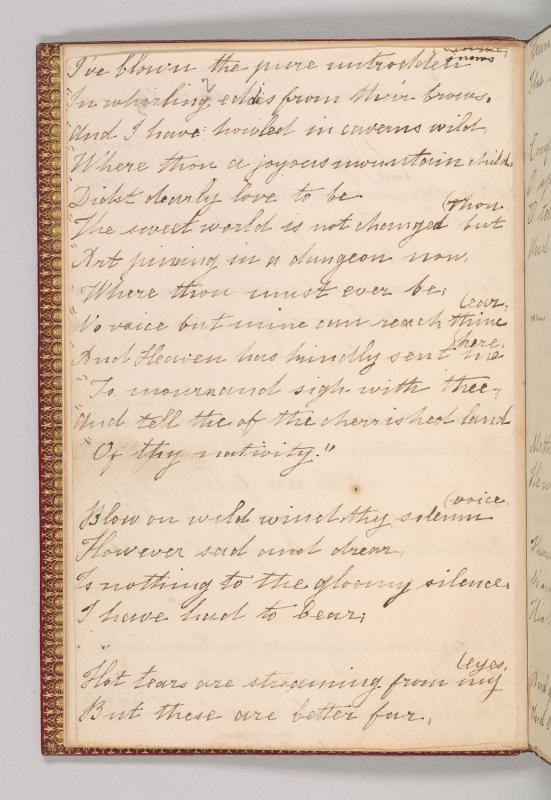 snows
"I've blown the pure untrodden
"In whirling eddis from their brows.
"And I have howled in caverns wild
"Where thou a joyous mountain child
"Didst dearly love to be
(thou
"The sweet world is not changed but
"Art pining in a dungeon now.
"Where thou must ever be;
(ear,
"No voice but mine can reach thine
here,
"And Heaven has kindly sent me
"To mourn and sigh with thee,
"And tell the of the cherrished land
"Of thy nativity."
(voice
Blow on wild wind thy solemn
However sad and drear
Is nothing to the gloomy silence
I have had to bear;
(eyes,
Hot tears are streaming from my
But these are better far,